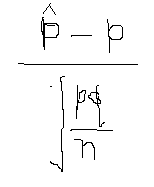 p̂ − p
√(pq/n)